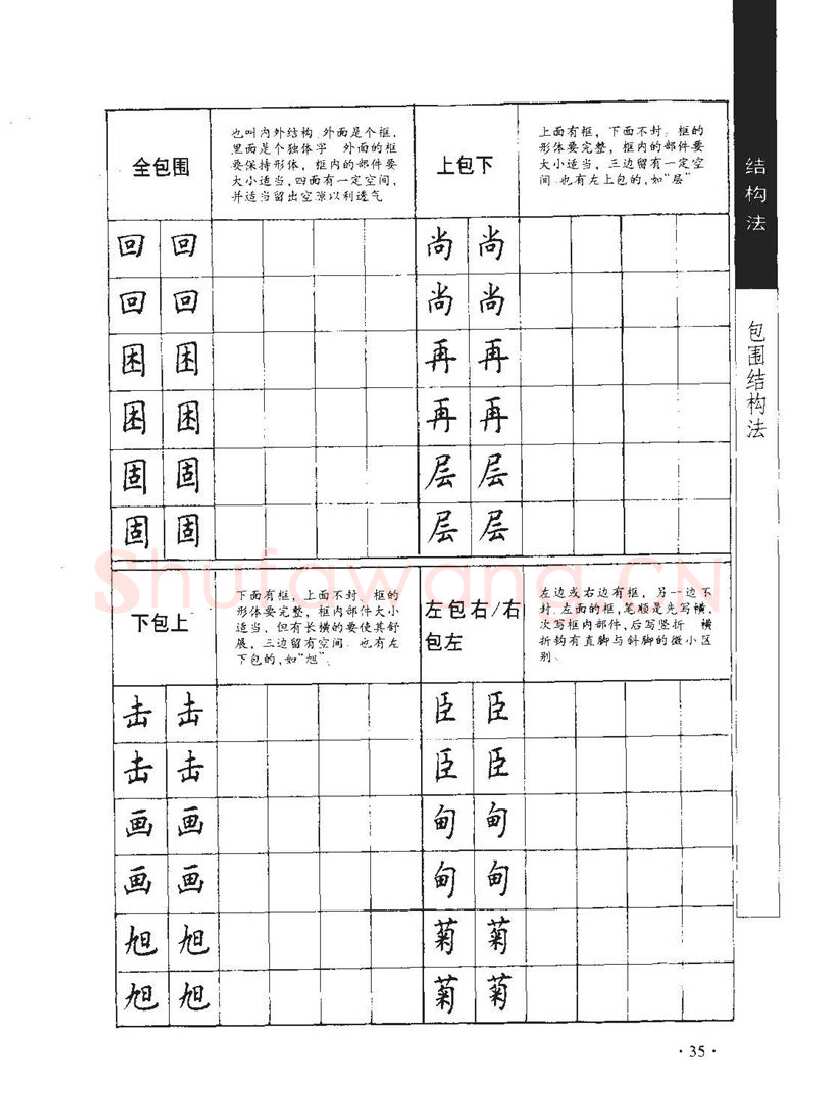 全包围
也叫内外结构 外面是个框,
里面是个独体字 外面的框
要保持形体, 框内的部件要
大小适当,四面有一定空间,
并适当留出空隙以利透气
回 回
回 回
困 困
困 困
固 固
固 固
上包下
上面有框, 下面不封. 框的
形体要完整, 框内的部件要
大小适当, 三边留有一定空
间.也有左上包的,如“层”
尚 尚
尚 尚
再 再
再 再
层 层
层 层
Shufawang.CN
下包上
下面有框, 上面不封、框的
形体要完整, 框内部件大小
适当, 但有长横的要使其舒
展, 三边留有空间. 也有左
下包的,如“旭”.
击 击
击 击
画 画
画 画
旭 旭
旭 旭
左包右/右
包左
左边或右边有框, 另一边不
封.左面的框,笔顺是先写横,
次写框内部件,后写竖折 横
折钩有直脚与斜脚的微小区
别.
臣 臣
臣 臣
甸 甸
甸 甸
菊 菊
菊 菊
结构法
包围结构法
·35·